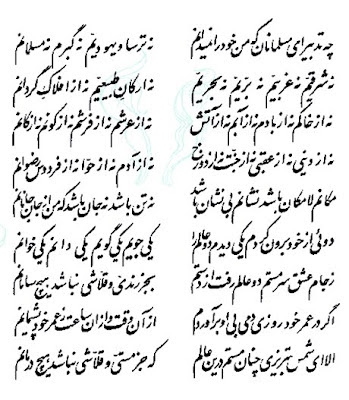 چه تدبیر ای مسلمانان که من خود را نمیدانم نه ترسا و یهودیم نه گبرم نه مسلمانم
نه شرقیم نه غربیم نه بریم نه بحریم نه ارکان طبیعیم نه از افلاک گردانم
نه از خاکم نه از بادم نه از آبم نه از آتش نه از عرشم نه از فرشم نه از کونم نه از کانم
نه از دنیی نه از عقبی نه از جنت نه از دوزخ نه از آدم نه از حوا نه از فردوس رضوانم
مکانم لامکان باشد نشانم بی نشان باشد نه تن باشد نه جان باشد که من از جان جانانم
دوئی از خود برون کردم یکی دیدم دو عالم را یکی جویم یکی گویم یکی دانم یکی خوانم
ز جام عشق سرمستم دو عالم رفت از دستم بجز رندی و قلاشی نباشد هیچ سامانم
اگر در عمر خود روزی دمی بی او برآوردم از آن وقت و از آن ساعت ز عمر خود پشیمانم
الا ای شمس تبریزی چنان مستم درین عالم که جز مستی و قلاشی نباشد هیچ درمانم